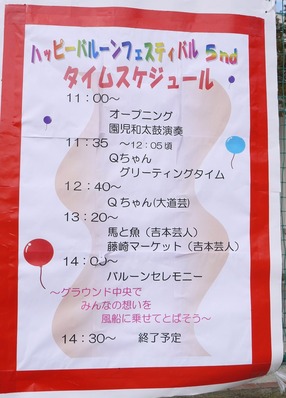 ハッピーバルーンフェスティバル 5nd
タイムスケジュール
11:00～
オープニング
園児和太鼓演奏
11:35 ～12:05頃
Qちゃん
グリーティングタイム
12:40～
Qちゃん(大道芸)
13:20～
馬と魚(吉本芸人)
藤崎マーケット(吉本芸人)
14:00～
バルーンセレモニー
～グラウンド中央で
みんなの想いを
風船に乗せてとばそう～
14:30～ 終了予定